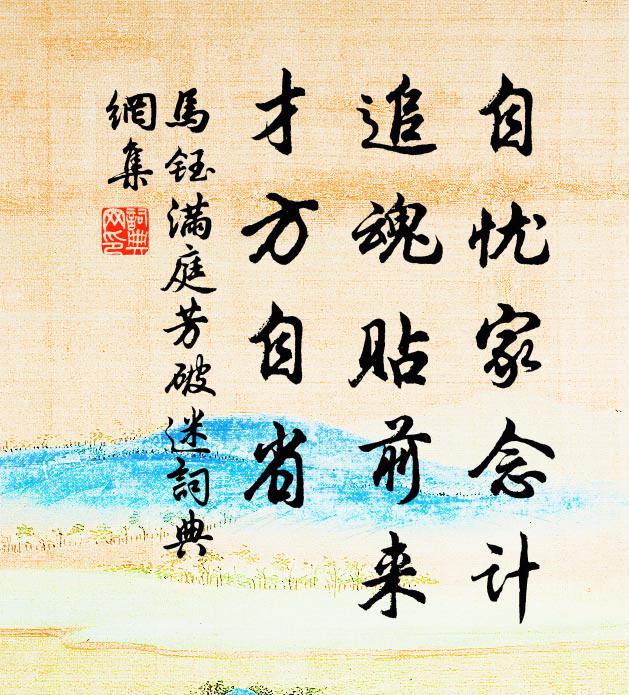 自忧家念计
追魂贴前来
才方自省
馬鈺满庭芳破迷詞典
網集
詞典
网印